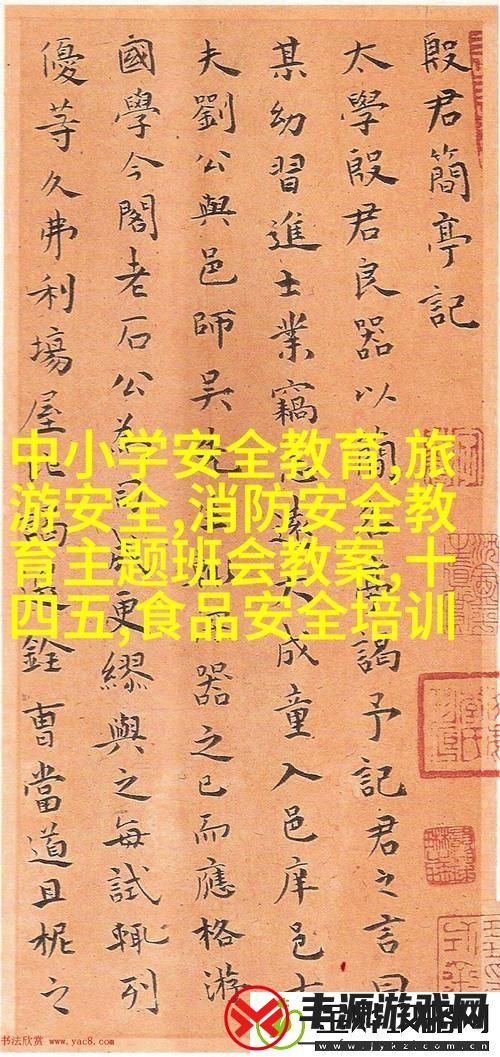 殷君簡亭記
太學殷君良器以簡
謁予記君之言曰
某幼習進士業竊
大成童入邑庠邑士
夫劉公與邑師吳先
器之已而應格游
國學今閣老石公為
更繆與之每試輒列
優等久弗利場屋
銓曹當道且柅之
中小学安全教育,旅
游安全,消防安全教
育主题班会教案,十
四五,食品安全培训
书法欣赏 www.yac8.com
丰源游戏网
www.jykz.com.cn